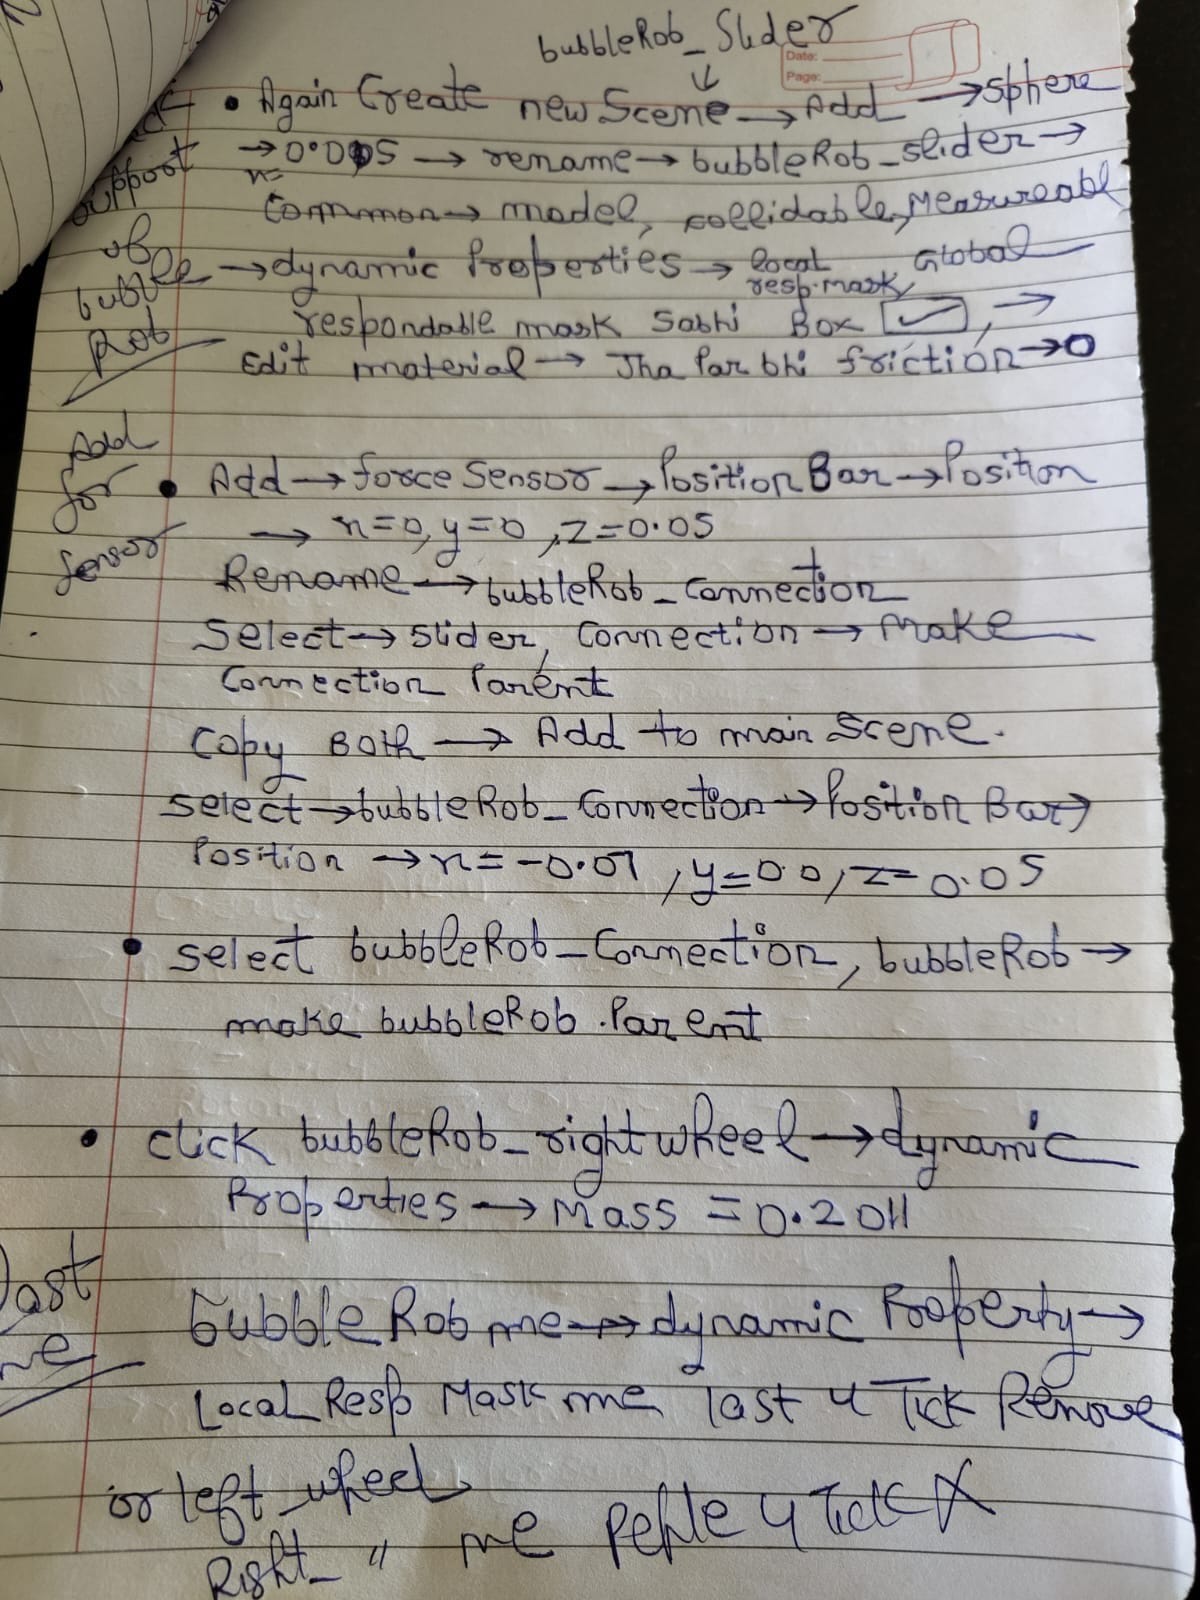 bubbleRob_Slider
↓
Date:
Page:
• Again Create new Scene → Add → Sphere
→ 0.005 → rename → bubbleRob_slider →
Common → model, collidable, Measureabl
→ dynamic Properties → local Global
resp. mask,
respondable mask Sabhi Box ✓, →
Edit material → Jha Par bhi friction → 0
support
of
bubble
Rob
Add
for
Sensor
• Add → force Sensor → Position Bar → Position
→ x=0, y=0, z=0.05
Rename → bubbleRob_Connection
Select → slider, Connection → Make
Connection Parent
Copy Both → Add to main Scene.
select → bubbleRob_Connection → Position Bar →
Position → x=-0.07, y=0.0, z=0.05
• select bubbleRob_Connection, bubbleRob →
make bubbleRob Parent
• click bubbleRob_rightwheel → dynamic
Properties → Mass = 0.2011
last
me
bubbleRob me → dynamic Property →
Local Resp Mask me last 4 Tick Remove
or left_wheel
Right_ " me Pehle 4 Tick X